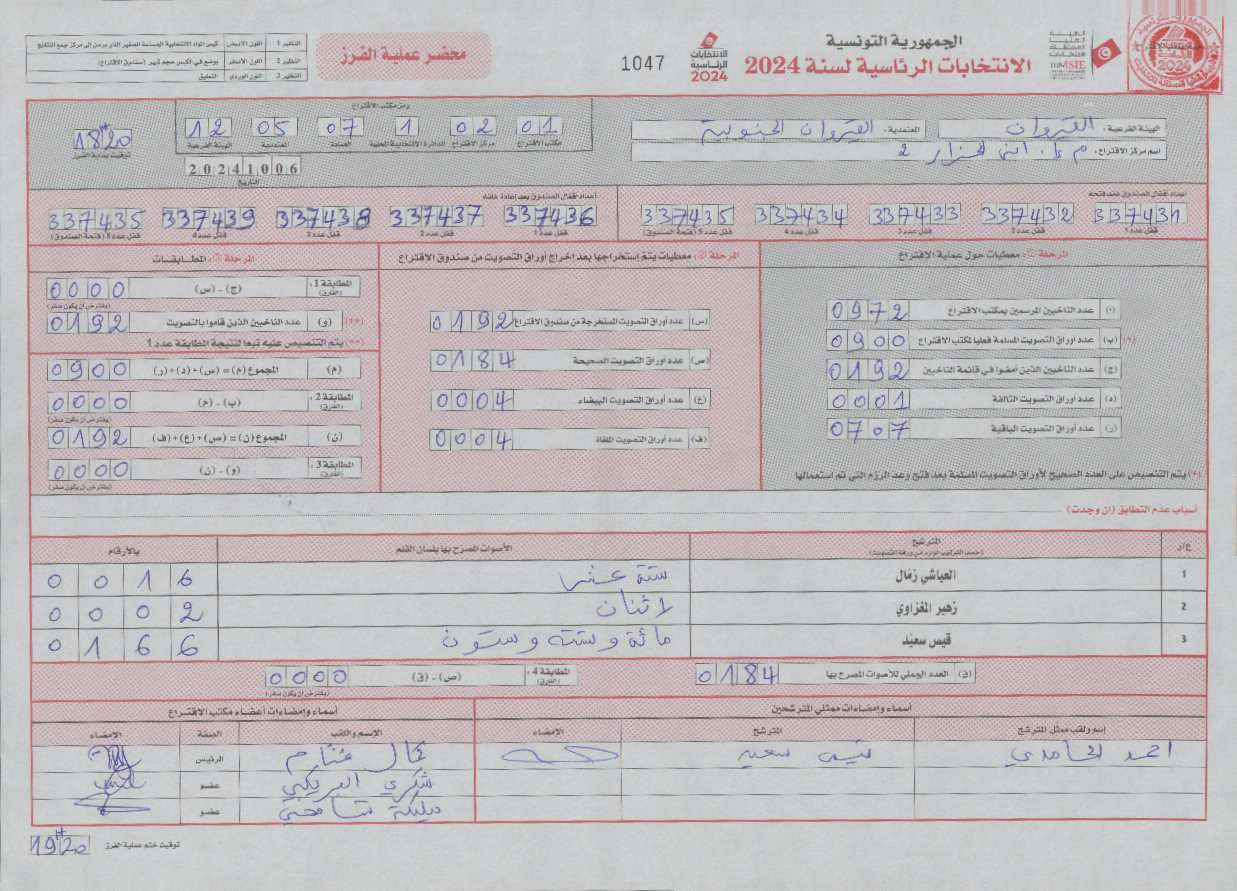 الجمهورية التونسية
الانتخابات الرئاسية لسنة 2024
الانتخابات
الرئاسية
2024
1047
محضر عملية الفرز
النظير 1 اللون الأبيض
النظير 2 اللون الأصفر يوضع في الكيس حجم كبير (صندوق الاقتراع)
النظير 3 اللون الوردي التعليق
الهيئة الفرعية: القيروان المعتمدية: القيروان الجنوبية
اسم مركز الاقتراع: م.إ. ابن الجزار 2
رمز مكتب الاقتراع
01 02 1 07 05 12
مكتب الاقتراع مركز الاقتراع الدائرة الانتخابية المحلية العمادة المعتمدية الهيئة الفرعية
20241006
التاريخ
18H20
توقيت بداية الفرز
أعداد أقفال الصندوق عند فتحه
337431 337432 337433 337434 337435
قفل عدد 1 قفل عدد 2 قفل عدد 3 قفل عدد 4 قفل عدد 5 (فتحة الصندوق)
أعداد أقفال الصندوق بعد إعادة غلقه
337436 337437 337438 337439 337435
قفل عدد 1 قفل عدد 2 قفل عدد 3 قفل عدد 4 قفل عدد 5 (فتحة الصندوق)
المرحلة ①: معطيات حول عملية الاقتراع
(أ) عدد الناخبين المرسمين بمكتب الاقتراع 0972
(*) (ب) عدد أوراق التصويت المسلمة فعليا لمكتب الاقتراع 0900
(ج) عدد الناخبين الذين أمضوا في قائمة الناخبين 0192
(د) عدد أوراق التصويت التالفة 0001
(ر) عدد أوراق التصويت الباقية 0707
(*) يتم التنصيص على العدد الصحيح لأوراق التصويت المسلمة بعد فتح وعد الرزم التي تم استعمالها
المرحلة ②: معطيات يتم إستخراجها بعد إخراج أوراق التصويت من صندوق الاقتراع
(س) عدد أوراق التصويت المستخرجة من صندوق الاقتراع 0192
(ص) عدد أوراق التصويت الصحيحة 0184
(ع) عدد أوراق التصويت البيضاء 0004
(ف) عدد أوراق التصويت الملغاة 0004
المرحلة ③: المطابقات
المطابقة 1: (الفارق) (ج) - (س) 0000
(يفترض أن يكون صفر)
(**) (و) عدد الناخبين الذين قاموا بالتصويت 0192
(**) يتم التنصيص عليه تبعا لنتيجة المطابقة عدد 1
(م) المجموع (م) = (س) + (د) + (ر) 0900
المطابقة 2: (الفارق) (ب) - (م) 0000
(يفترض أن يكون صفر)
(ن) المجموع (ن) = (ص) + (ع) + (ف) 0192
المطابقة 3: (الفارق) (و) - (ن) 0000
(يفترض أن يكون صفر)
أسباب عدم التطابق (إن وجدت)
ع/ر المترشح الأصوات المصرح بها بلسان القلم بالأرقام
(حسب الترتيب الوارد في ورقة التصويت)
1 العياشي زمال ستة عشر 0016
2 زهير المغزاوي اثنان 0002
3 قيس سعيد مائة وستة وستون 0166
(ق) العدد الجملي للأصوات المصرح بها 0184 المطابقة 4: (الفارق) (ص) - (ق) 0000
(يفترض أن يكون صفر)
أسماء وإمضاءات ممثلي المترشحين
إسم ولقب ممثل المترشح المترشح الإمضاء
احمد الحامدي قيس سعيد
أسماء وإمضاءات أعضاء مكتب الاقتراع
الإسم واللقب الصفة الإمضاء
كمال الرئيس
شكري البريكي عضو
مليكة عضو
19H20 توقيت ختم عملية الفرز